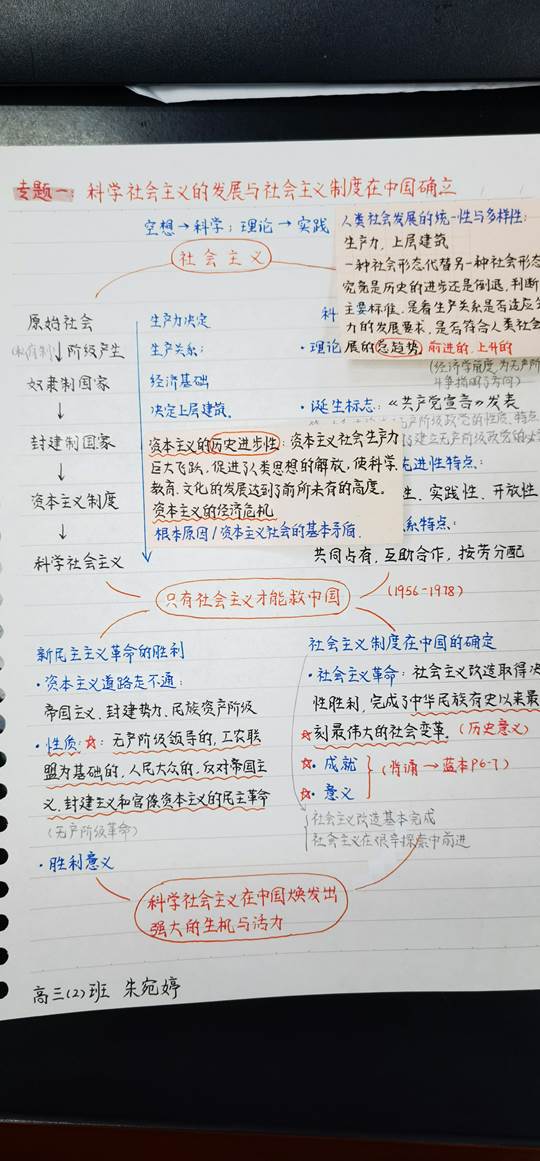 专题一: 科学社会主义的发展与社会主义制度在中国确立
空想→科学; 理论→实践
社会主义
人类社会发展的统一性与多样性:
生产力, 上层建筑
一种社会形态代替另一种社会形态
究竟是历史的进步还是倒退, 判断
主要标准, 是看生产关系是否适应
力的发展要求, 是否符合人类社会
展的总趋势) 前进的, 上升的
原始社会
(私有制)↓阶级产生
奴隶制国家
↓
封建制国家
↓
资本主义制度
↓
科学社会主义
生产力决定
生产关系;
经济基础
决定上层建筑.
科
·理论
(经济学角度, 为无产阶
斗争指明了方向)
·诞生标志: 《共产党宣言》发表
无产阶级政党的性质、特点
建立无产阶级政党的必
资本主义的历史进步性: 资本主义社会生产力
巨大飞跃, 促进了人类思想的解放, 使科学
教育、文化的发展达到了前所未有的高度。
资本主义的经济危机
根本原因/资本主义社会的基本矛盾.
先进性特点:
性、实践性、开放性
系特点:
共同占有, 互助合作, 按劳分配
只有社会主义才能救中国
(1956-1978)
新民主主义革命的胜利
·资本主义道路走不通:
帝国主义、封建势力、民族资产阶级
·性质:☆: 无产阶级领导的, 工农联
盟为基础的, 人民大众的, 反对帝国主
义、封建主义和官僚资本主义的民主革命
(无产阶级革命)
·胜利意义
社会主义制度在中国的确定
·社会主义革命: 社会主义改造取得决
性胜利, 完成了中华民族有史以来最
☆刻最伟大的社会变革. (历史意义)
☆·成就
☆·意义
(背诵→蓝本P6-7)
社会主义改造基本完成
社会主义在艰辛探索中前进
科学社会主义在中国焕发出
强大的生机与活力
高三(2)班 朱宛婷